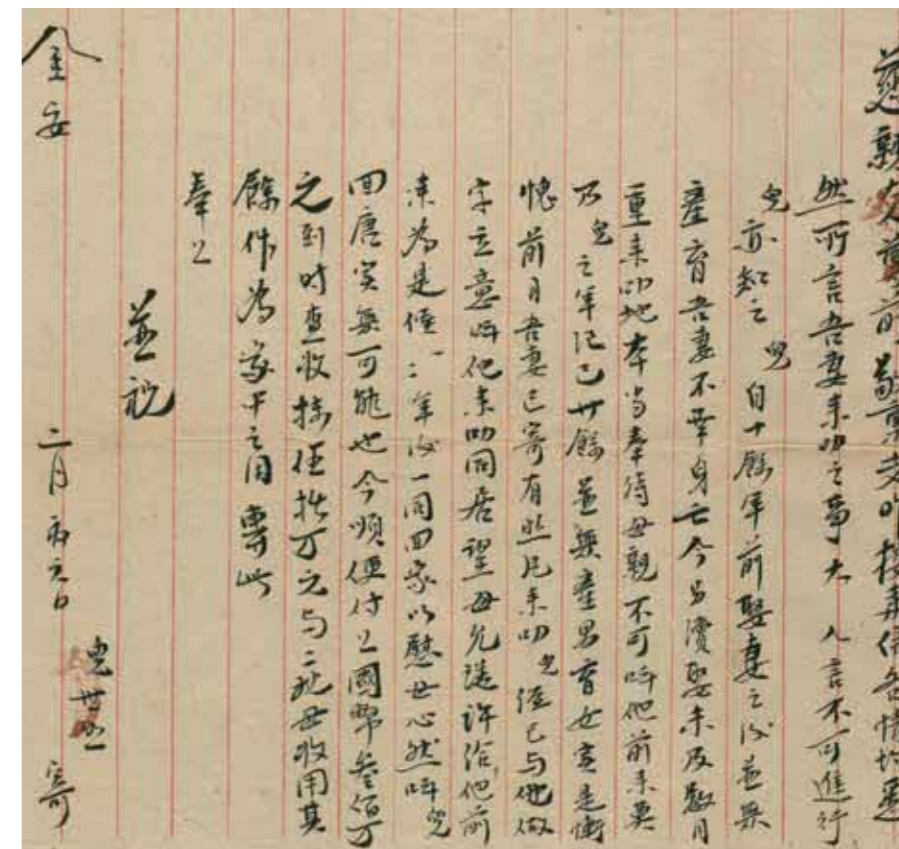 慈親大人尊前敬稟者昨接來信各情均悉
然所言吾妻來叻之事大人言不可進行
兒亦知之兒自十餘年前娶妻之後並無
產育吾妻不幸身亡今另續娶未及數月
重來叻地本当奉侍母親不可叫他前來奠
乃兒之年紀已廿餘並無產男育女实是慚
愧前月吾妻已寄有照片來叻兒經已与他做
字立意叫他來叻同居望母允遂許给他前
來為是僅二三年後一同回家以慰母心然叫兒
回唐实無可能也今順便付上國幣叁佰万
元到时查收撥伍拾万元与二叔母收用其
餘作為家中之用專此
奉上
並祝
金安
二月初六日
兒世 寄